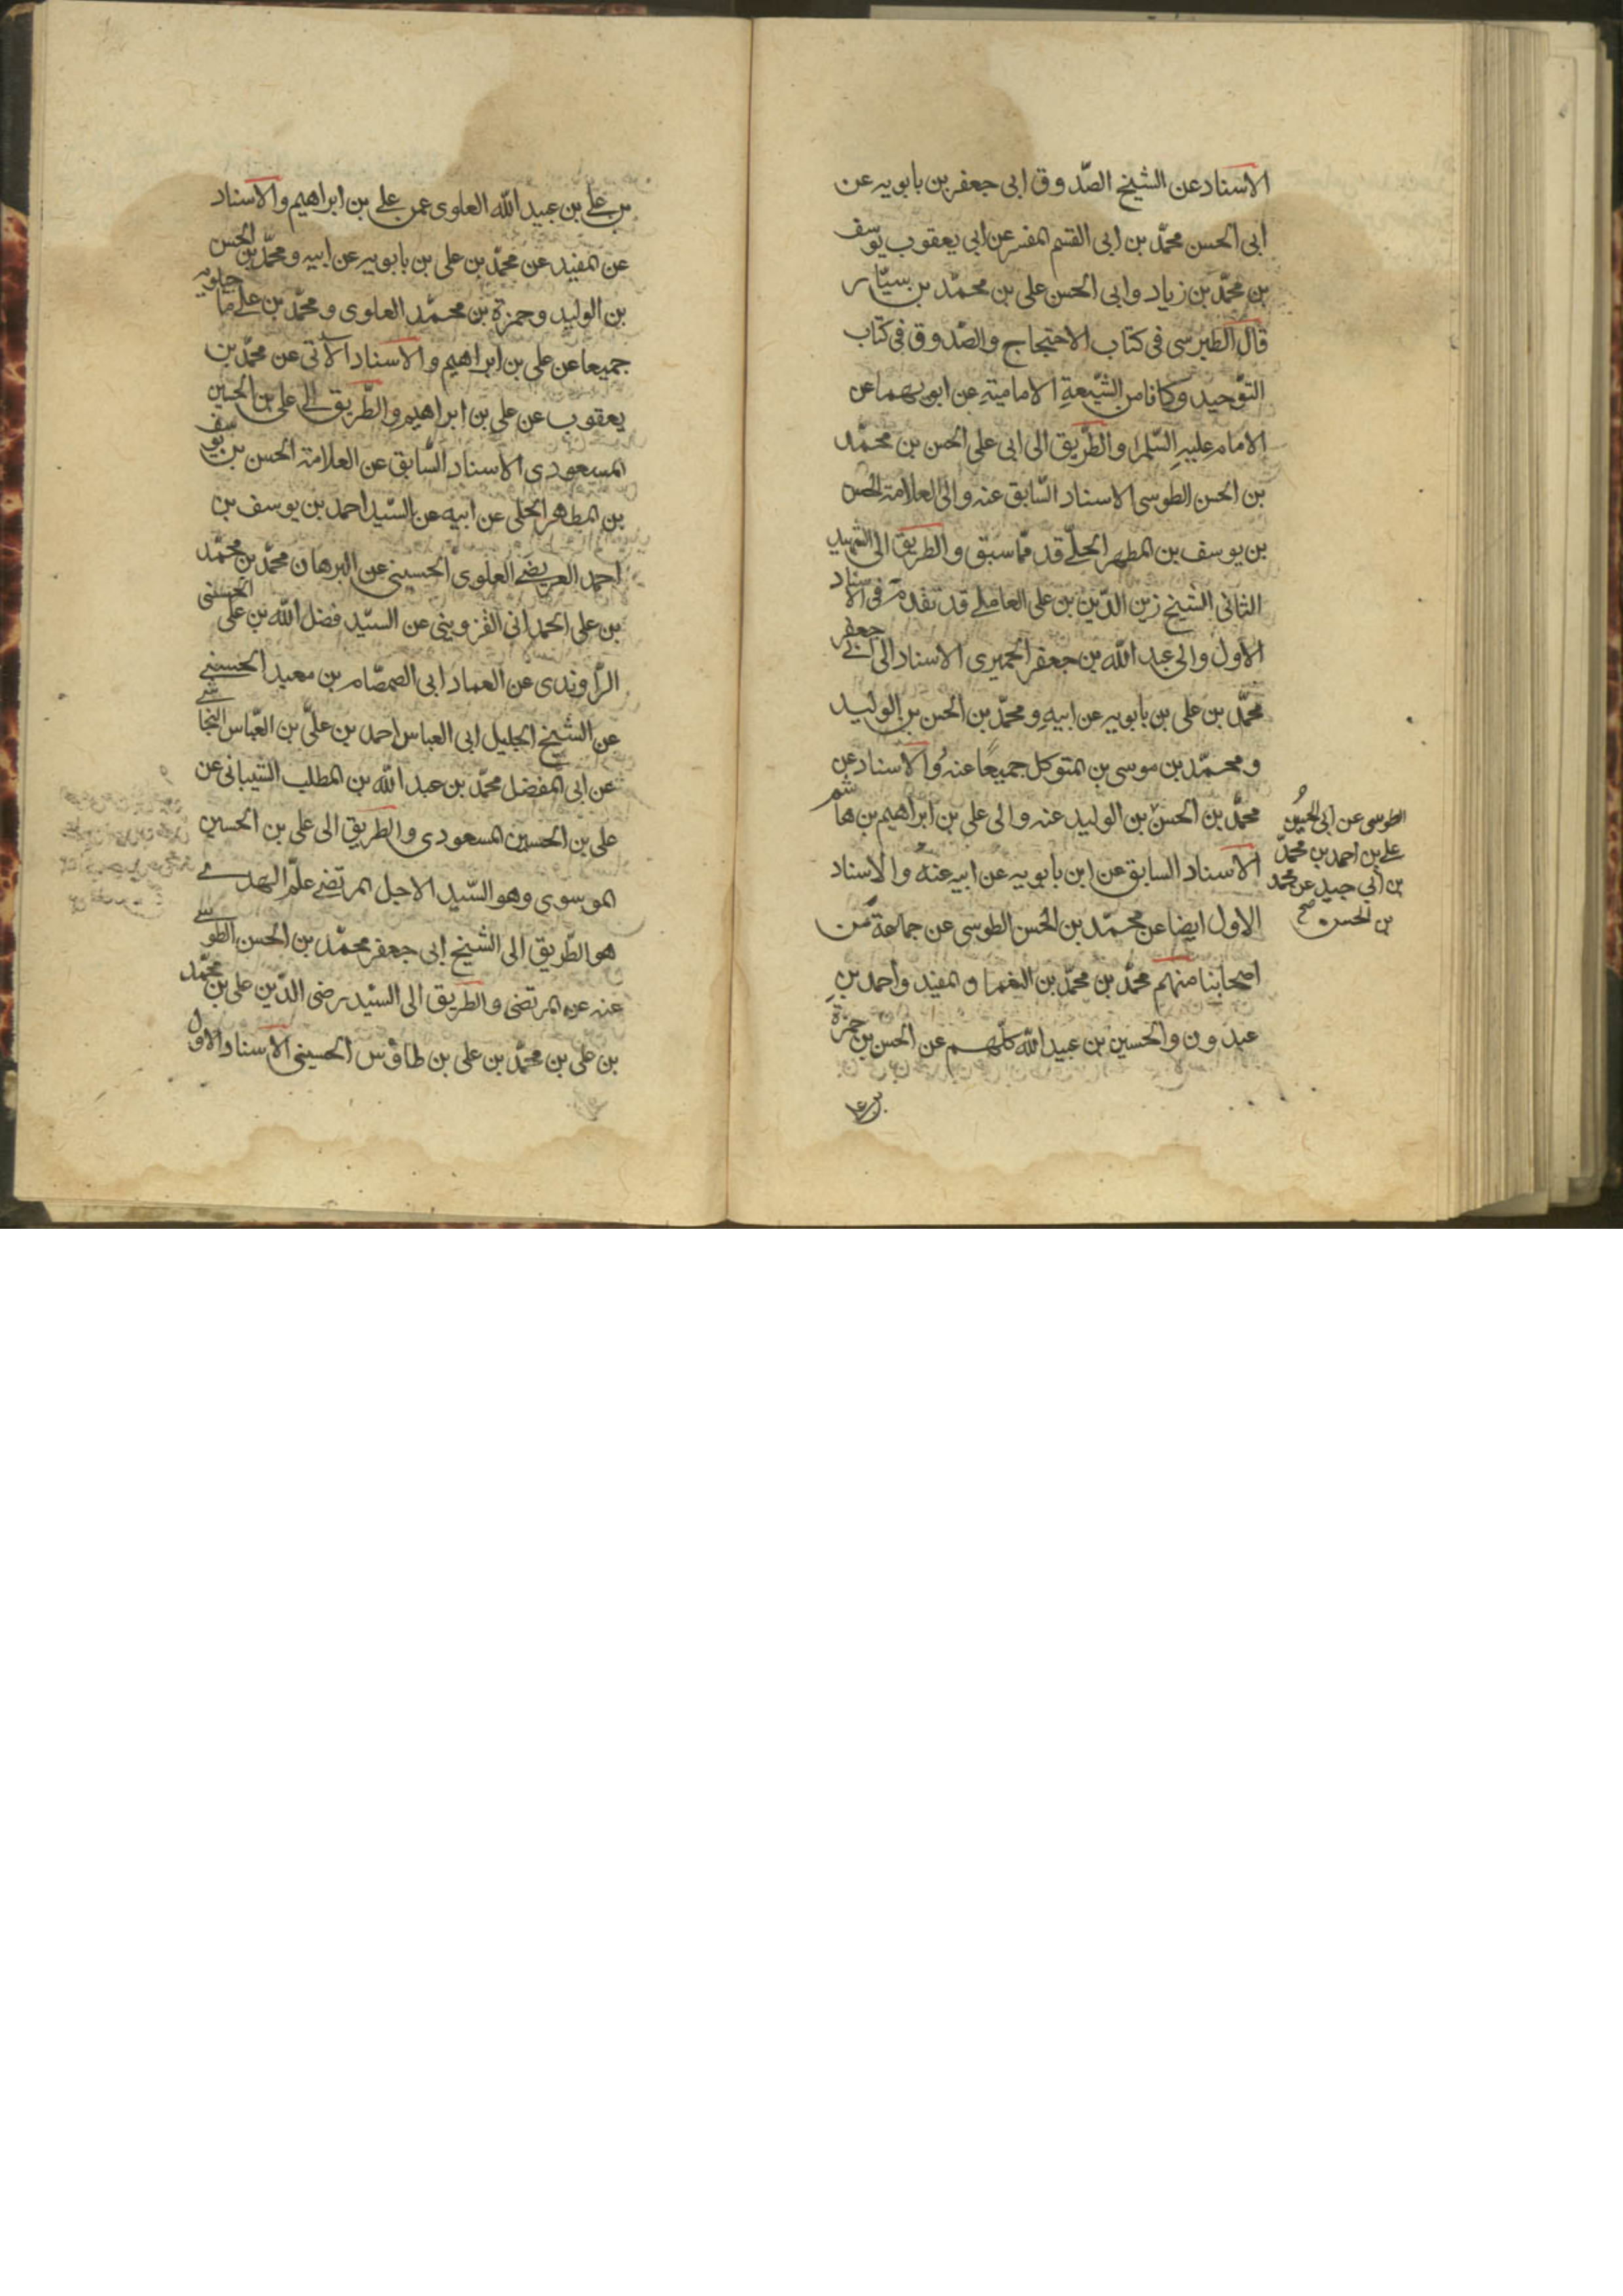 الاسناد عن الشيخ الصّدوق ابى جعفر بن بابويه عن
ابى الحسن محمّد بن ابى القسم المفسر عن ابى يعقوب يوسف
بن محمّد بن زياد وابى الحسن على بن محمّد بن سيّار
قال الطبرسى فى كتاب الاحتجاج والصّدوق فى كتاب
التوّحيد وكانا من الشّيعةِ الاماميّةِ عن ابويهما عن
الامام عليهِ السّلم والطّريق الى ابى على الحسن بن محمّد
بن الحسن الطوسى الاسناد السّابق عنه والى العلامة الحسن
بن يوسف بن المطهر الحلّى قد ممّا سبق والطريق الى الشهيد
الثانى الشيخ زين الدّين بن على العاملى قد تقدم فى الاسناد
الاول والى عبد الله بن جعفر الحميرى الاسناد الى ابى جعفر
محمّد بن على بن بابويه عن ابيهِ ومحمّد بن الحسن بن الوليد
ومحمّد بن موسى بن المتوكل جميعًا عنه والاسناد عن
محمّد بن الحسن بن الوليد عنه والى على بن ابراهيم بن هاشم
الاسناد السابق عن ابن بابويه عن ابيه عنه والاسناد
الاول ايضا عن محمّد بن الحسن الطوسى عن جماعة من
اصحابنا منهم محمّد بن محمّد بن النعمان المفيد واحمد بن
عبدون والحسين بن عبيد الله كلّهم عن الحسن بن حمزة
بن على
الطوسى عن ابى الحسين
على بن احمد بن محمّد
بن ابى جيد عن محمد
بن الحسن صح
بن على بن عبيد الله العلوى عن على بن ابراهيم والاسناد
عن المفيد عن محمّد بن على بن بابويه عن ابيه ومحمّد بن الحسن
بن الوليد وحمزة بن محمّد العلوى ومحمّد بن على ماجيلويه
جميعا عن على بن ابراهيم والاسناد الآتى عن محمّد بن
يعقوب عن على بن ابراهيم والطّريق الى على بن الحسين
المسعودى الاسناد السّابق عن العلامة الحسن بن يوسف
بن المطهر الحلى عن ابيه عن السّيد احمد بن يوسف بن
احمد العريضى العلوى الحسينى عن البرهان محمّد بن محمّد
بن على الحمدانى القزوينى عن السيّد فضل الله بن على الحسنى
الرّاوندى عن العماد ابى الصمصام بن معبد الحسنى
عن الشيخ الجليل ابى العباس احمد بن علىّ بن العبّاس النجاشى
عن ابى المفضل محمّد بن عبد الله بن المطلب الشيبانى عن
على بن الحسين المسعودى والطريق الى على بن الحسين
الموسوى وهو السّيد الاجل المرتضى علم الهدى
هو الطّريق الى الشيخ ابى جعفر محمّد بن الحسن الطوسى
عنه عن المرتضى والطريق الى السيّد رضى الدّين على بن محمّد
بن على بن محمّد بن على بن طاوس الحسينى الاسناد الاول